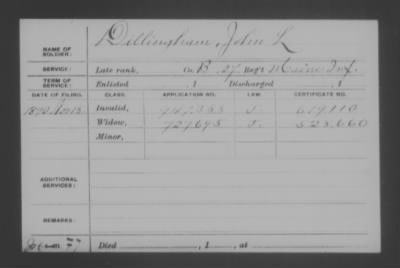 NAME OF SOLDIER: Dillingham, John L
SERVICE: Late rank, Co. B, 27 Reg't Maine Inf.
TERM OF SERVICE: Enlisted , 1 Discharged , 1
DATE OF FILING. CLASS. APPLICATION NO. LAW. CERTIFICATE NO.
1890 Invalid,
Widow, 727695 523.660
Minor,
ADDITIONAL SERVICES:
REMARKS:
Died , 1 , at